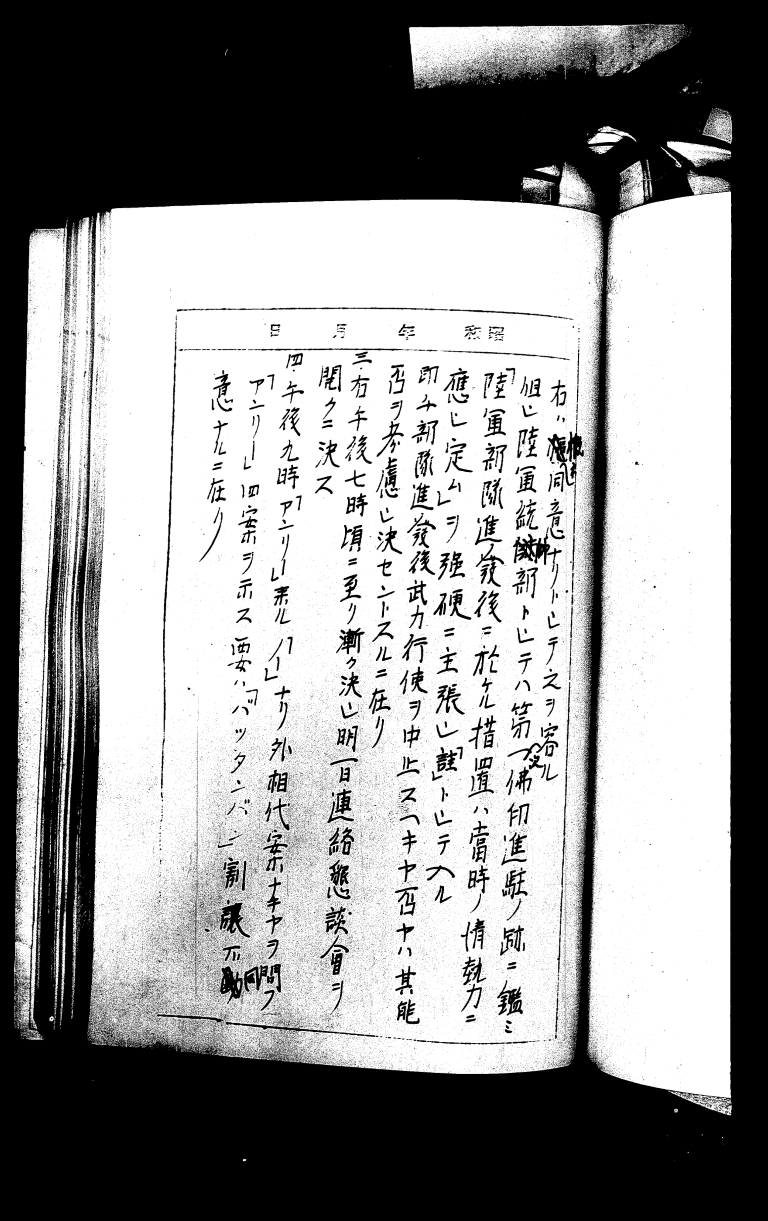 昭和 年 月 日
右ハ概ネ同意ナリトシテ之ヲ容ル
但シ陸軍統帥部トシテハ第一次佛印進駐ノ跡ニ鑑ミ
「陸軍部隊進發後ニ於ケル措置ハ當時ノ情勢ニ
應シ定ム」ヲ強硬ニ主張シ「註」トシテ入ル
即チ部隊進發後武力行使ヲ中止スヘキヤ否ヤハ其能
否ヲ考慮シ決セントスルニ在リ
三、右午後七時頃ニ至リ漸ク決シ明一日連絡懇談會ヲ
開クニ決ス
四、午後九時「アンリー」来ル「ノー」ナリ外相代案ナキヤヲ問フ
「アンリー」四案ヲ示ス要ハ「バッタンバン」割譲不同
意ナルニ在リ